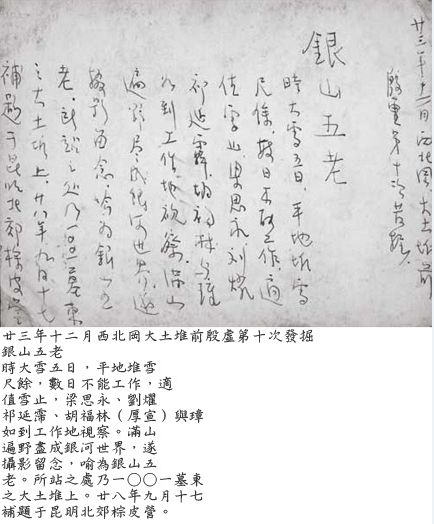 廿三年十二月西北岡大土堆前
殷虛第十次發掘
銀山五老
時大雪五日,平地堆雪
尺餘,數日不能工作,適
值雪止,梁思永、劉燿
祁延霈、胡福林與璋
如到工作地視察。滿山
遍野盡成銀河世界,遂
攝影留念,喻為銀山五
老。所站之處乃一〇〇一墓東
之大土堆上。廿八年九月十七
補題于昆明北郊棕皮營
廿三年十二月西北岡大土堆前殷虛第十次發掘
銀山五老
時大雪五日,平地堆雪
尺餘,數日不能工作,適
值雪止,梁思永、劉燿
祁延霈、胡福林(厚宣)與璋
如到工作地視察。滿山
遍野盡成銀河世界,遂
攝影留念,喻為銀山五
老。所站之處乃一〇〇一墓東
之大土堆上。廿八年九月十七
補題于昆明北郊棕皮營。